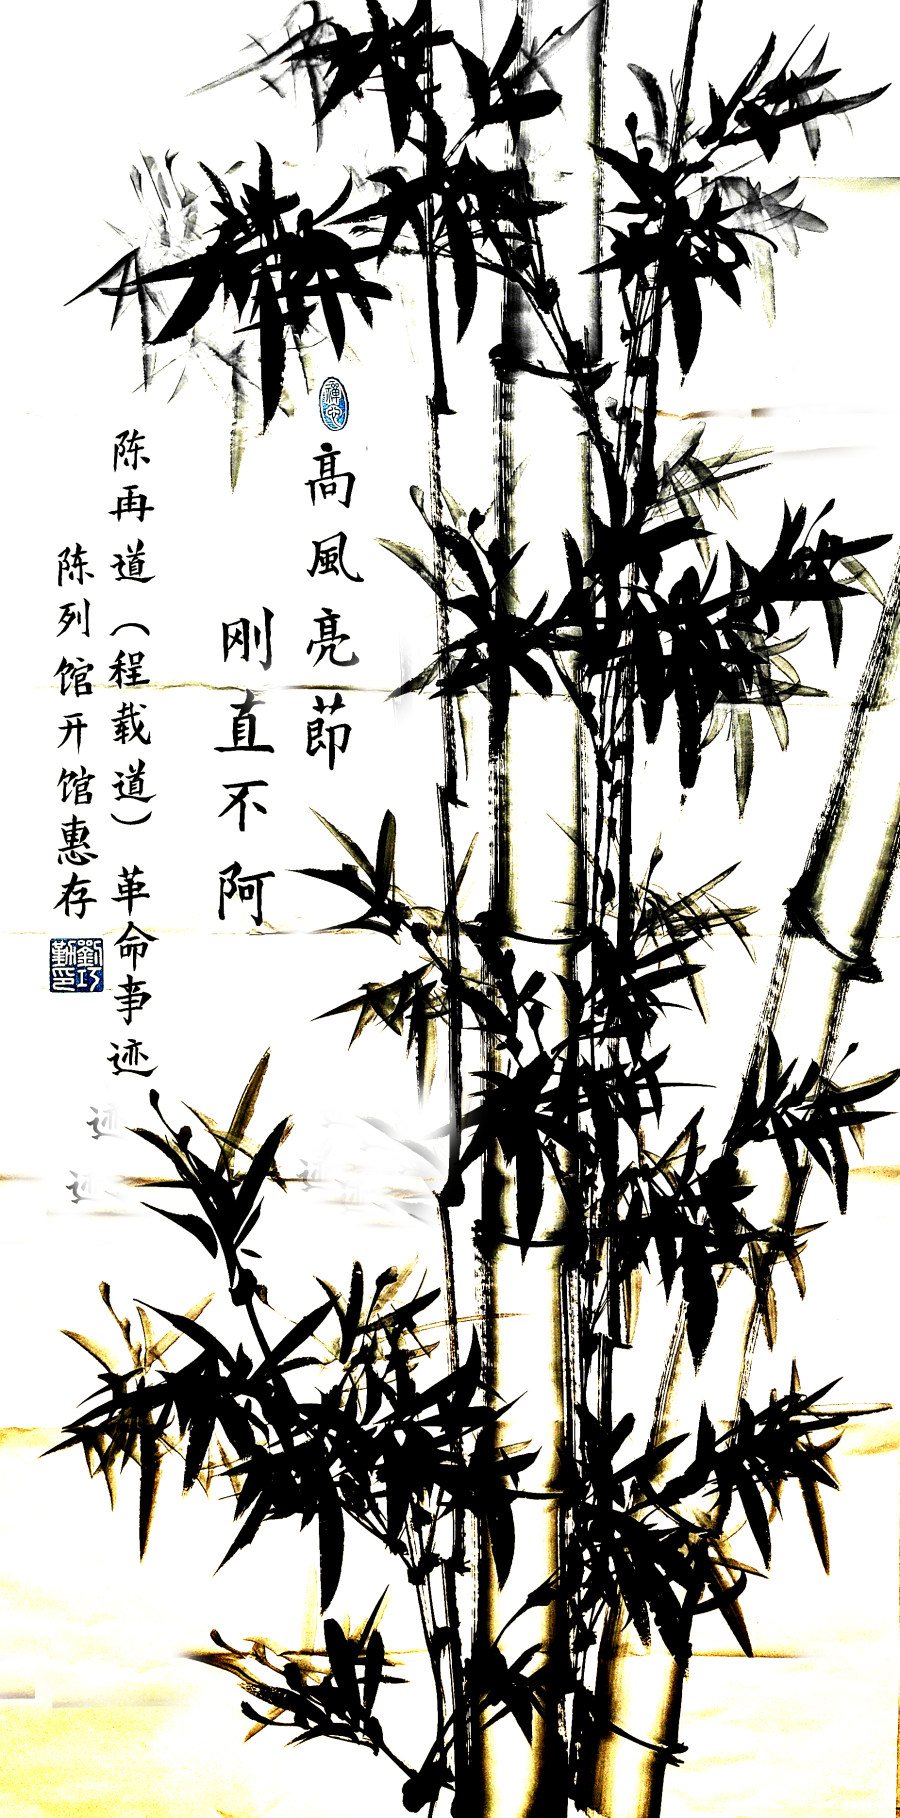 高風亮節
刚直不阿
陈再道（程载道）革命事迹
陈列馆开馆惠存
劉巧勤印
迹
迹